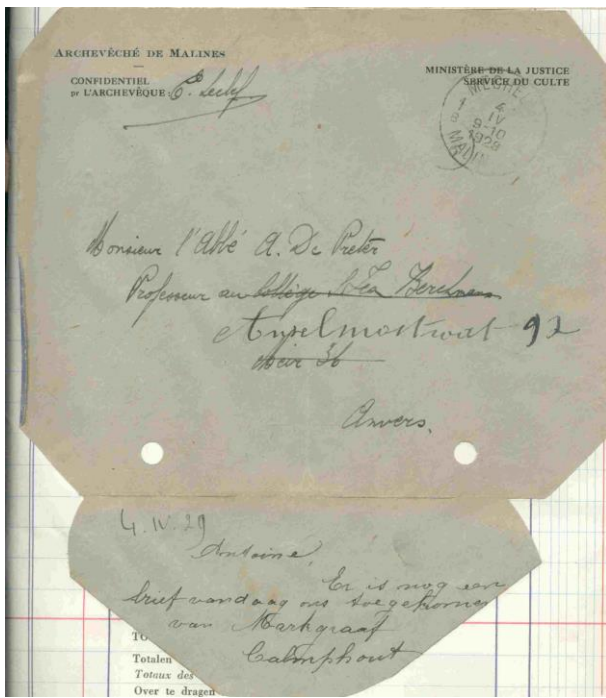 ARCHEVÊCHÉ DE MALINES
CONFIDENTIEL
Pr L'ARCHEVÊQUE:
MINISTÈRE DE LA JUSTICE
SERVICE DU CULTE
4
IV
9-10
1928
Monsieur l'Abbé A. De Preter
Professeur au Collège St Jean Berchmans
Anselmostraat 92
Meir 36
Anvers.
4.IV.29
Antoine,
Er is nog een
brief vandaag ons toegekomen
van Markgraaf
Calmphout
Totalen
Totaux des
Over te dragen